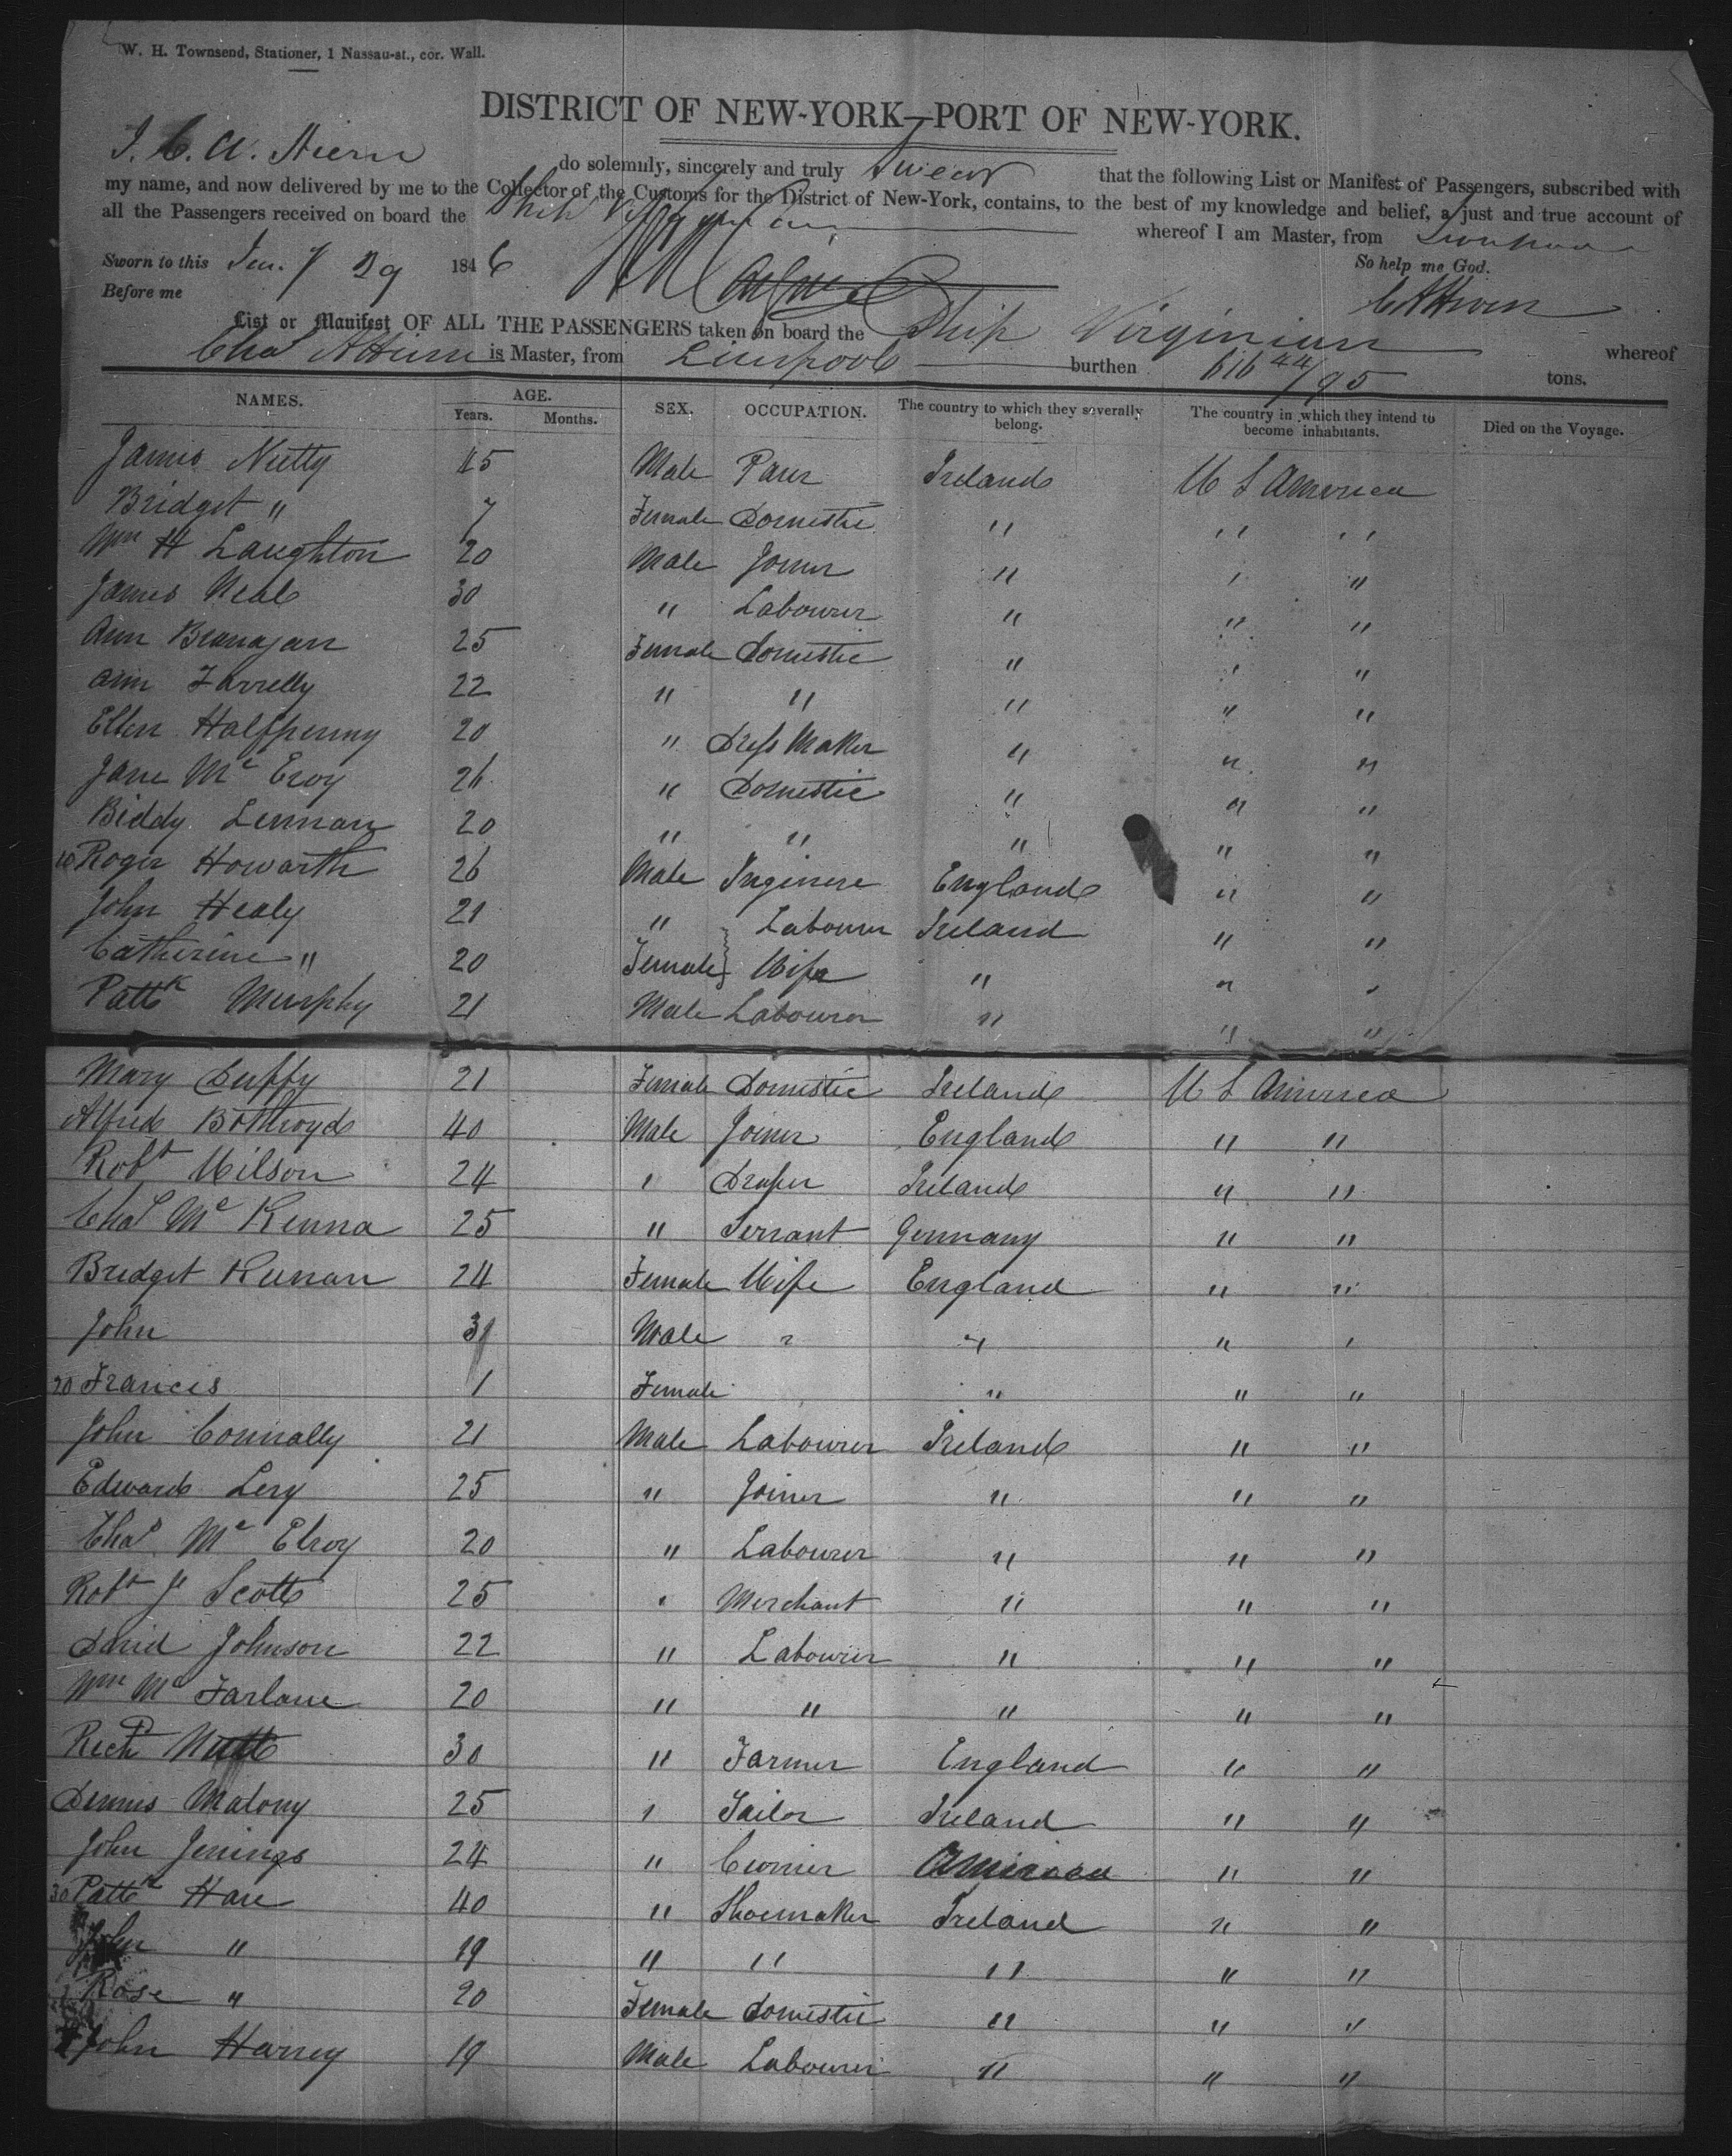 W. H. Townsend, Stationer, 1 Nassau-st., cor. Wall.
DISTRICT OF NEW-YORK—PORT OF NEW-YORK.
I, C. A. Hiern do solemnly, sincerely and truly Swear that the following List or Manifest of Passengers, subscribed with
my name, and now delivered by me to the Collector of the Customs for the District of New-York, contains, to the best of my knowledge and belief, a just and true account of
all the Passengers received on board the Ship Virginian whereof I am Master, from Liverpool
Sworn to this 29 1846 So help me God.
Before me C A Hiern
List or Manifest OF ALL THE PASSENGERS taken on board the Ship Virginian whereof
Chas A Hiern is Master, from Liverpool burthen 616 44/95 tons.
NAMES. AGE. SEX. OCCUPATION. The country to which they severally belong. The country in which they intend to become inhabitants. Died on the Voyage.
Years. Months.
James Nutty 45 Male Ireland U S America
Bridget " 7 Female Domestic " " "
Wm H Laughton 20 Male Joiner " " "
James Neal 30 " Labourer " " "
Ann Branagan 25 Female Domestic " " "
Ann Farrelly 22 " " " " "
Ellen Halfpenny 20 " Dress Maker " " "
Jane Mc Evoy 26 " Domestic " " "
Biddy Lennan 20 " " " " "
10 Roger Howarth 26 Male Inginere England " "
John Healy 21 " Labourer Ireland " "
Catherine " 20 Female Wife " " "
Pattk Murphy 21 Male Labourer " " "
Mary Duffy 21 Female Domestic Ireland U S America
Alfred Bothroyd 40 Male Joiner England " "
Robt Wilson 24 " Draper Ireland " "
Chas Mc Kenna 25 " Servant Germany " "
Bridget Keenan 24 Female Wife England " "
John 3 Male " " " "
20 Francis 1 Female " " "
John Connally 21 Male Labourer Ireland " "
Edward Lery 25 " Joiner " " "
Chas Mc Elroy 20 " Labourer " " "
Robt J Scott 25 " Merchant " " "
David Johnson 22 " Labourer " " "
Wm Mc Farlane 20 " " " " "
Richd Nutt 30 " Farmer England " "
Dennis Malony 25 " Tailor Ireland " "
John Jenings 24 " America " "
30 Pattk Hare 40 " Shoemaker Ireland " "
John " 19 " " " " "
Rose " 20 Female Domestic " " "
John Harvey 19 Male Labourer " " "